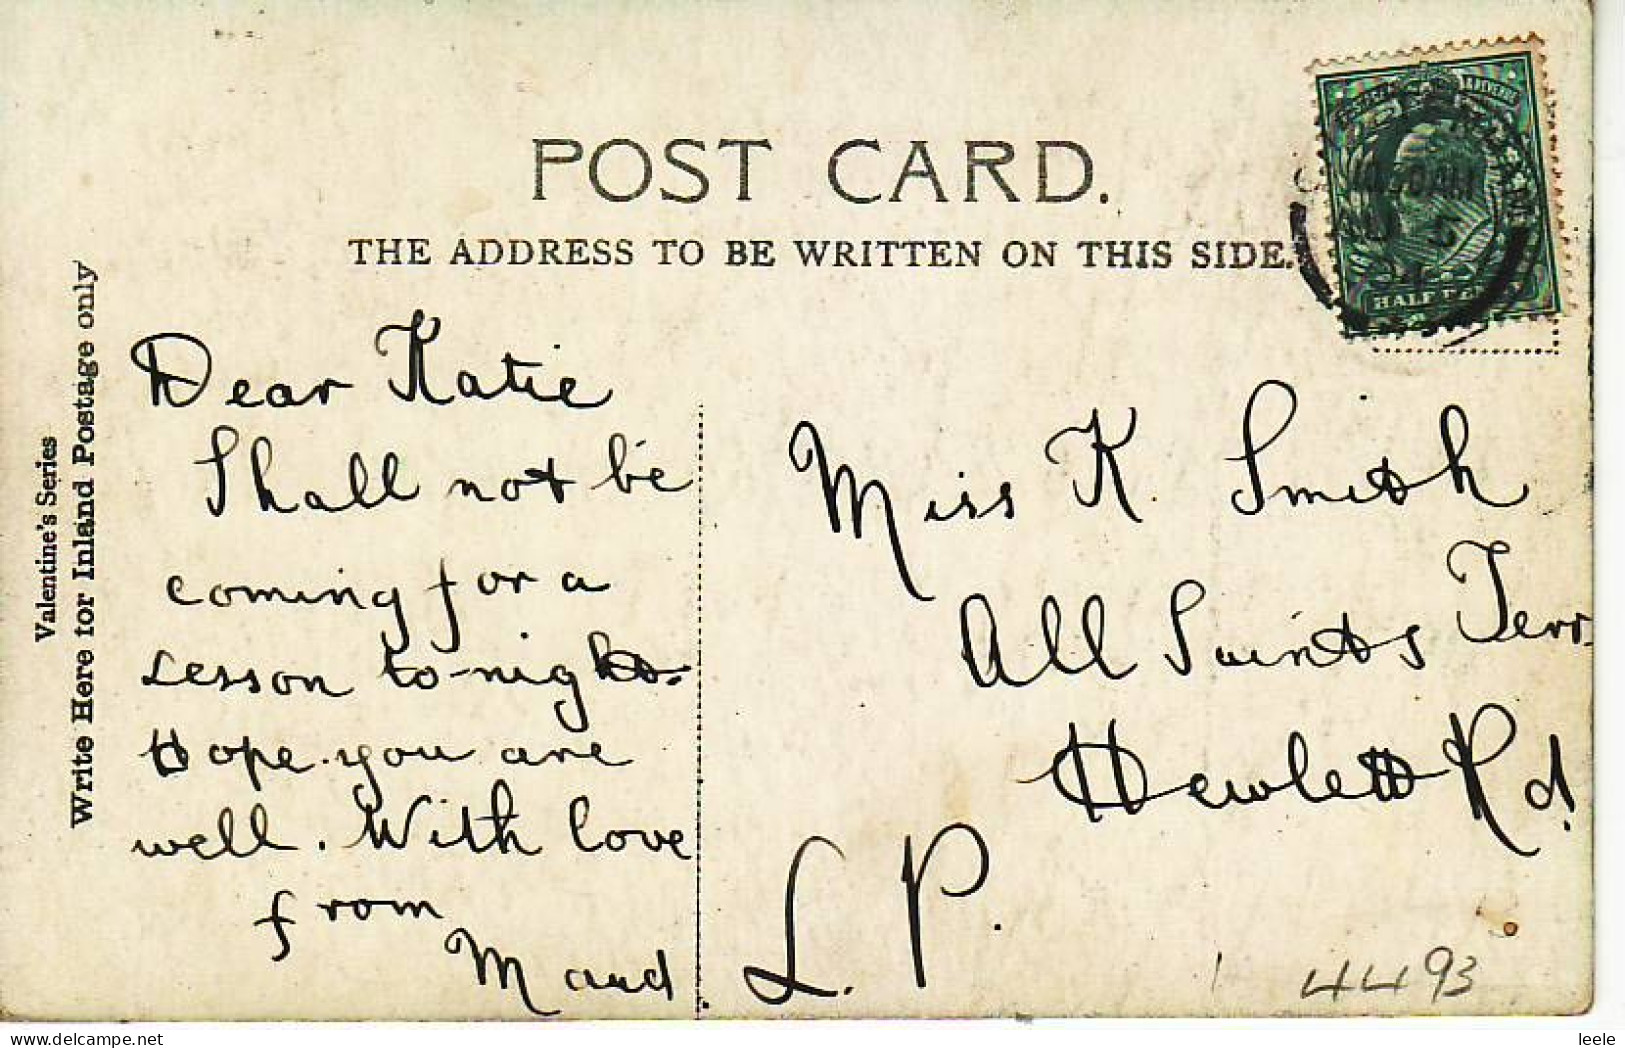 POST CARD.
THE ADDRESS TO BE WRITTEN ON THIS SIDE.
Valentine's Series
Write Here for Inland Postage only
Dear Katie
Shall not be
coming for a
lesson to-night.
Hope you are
well. With love
from
Maud
Miss K. Smith
All Saints Terr.
Hewlett Rd.
L. P.
4493
HALF
leele